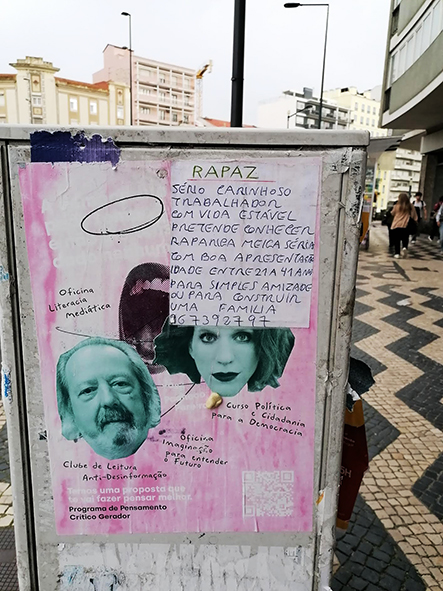 RAPAZ
SÉRIO CARINHOSO
TRABALHADOR
COM VIDA ESTÁVEL
PRETENDE CONHECER
RAPARIGA MEIGA SÉRIA
COM BOA
IDADE ENTRE 21 A 41
PARA SIMPLES AMIZADE
OU PARA CONSTRUIR
UMA FAMILIA
Oficina
Literacia
Mediática
Curso Política
e Cidadania
para a Democracia
Oficina
Imaginação
para entender
o Futuro
Clube de Leitura
Anti-Desinformação
Temos uma proposta que
te vai fazer pensar melhor.
Programa de Pensamento
Crítico Gerador